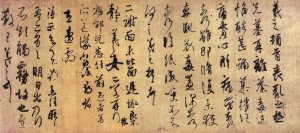 羲之頓首喪亂之極
先墓再離荼毒追
惟酷甚號慕摧絕
痛貫心肝痛當奈何
奈何雖即脩復未獲
奔馳哀毒益深奈何
奈何臨紙感哽不知
何言羲之頓首頓首
二謝面未比面遲詠良
不靜羲之女愛再拜
想邵兒悉佳前患者善
左邊劇
得示知足下猶未佳耿耿
吾亦劣劣明日出乃行
不欲觸霧故也遲散